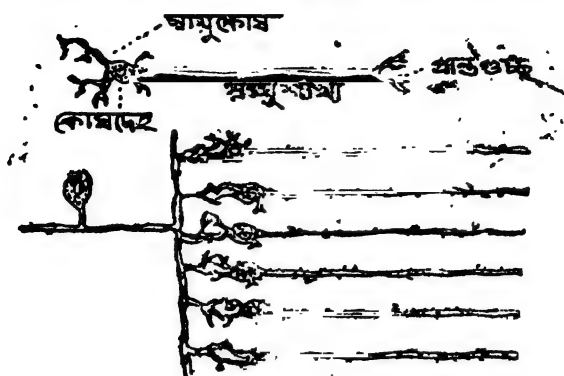 স্নায়ুকোষ
প্রান্তগুচ্ছ
স্নায়ুশাখা
কোষদেহ